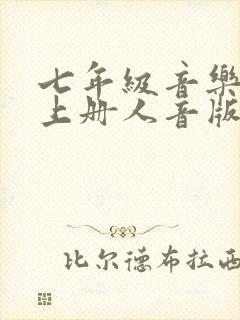 七年級音樂
上册人音版
比尔德布拉西